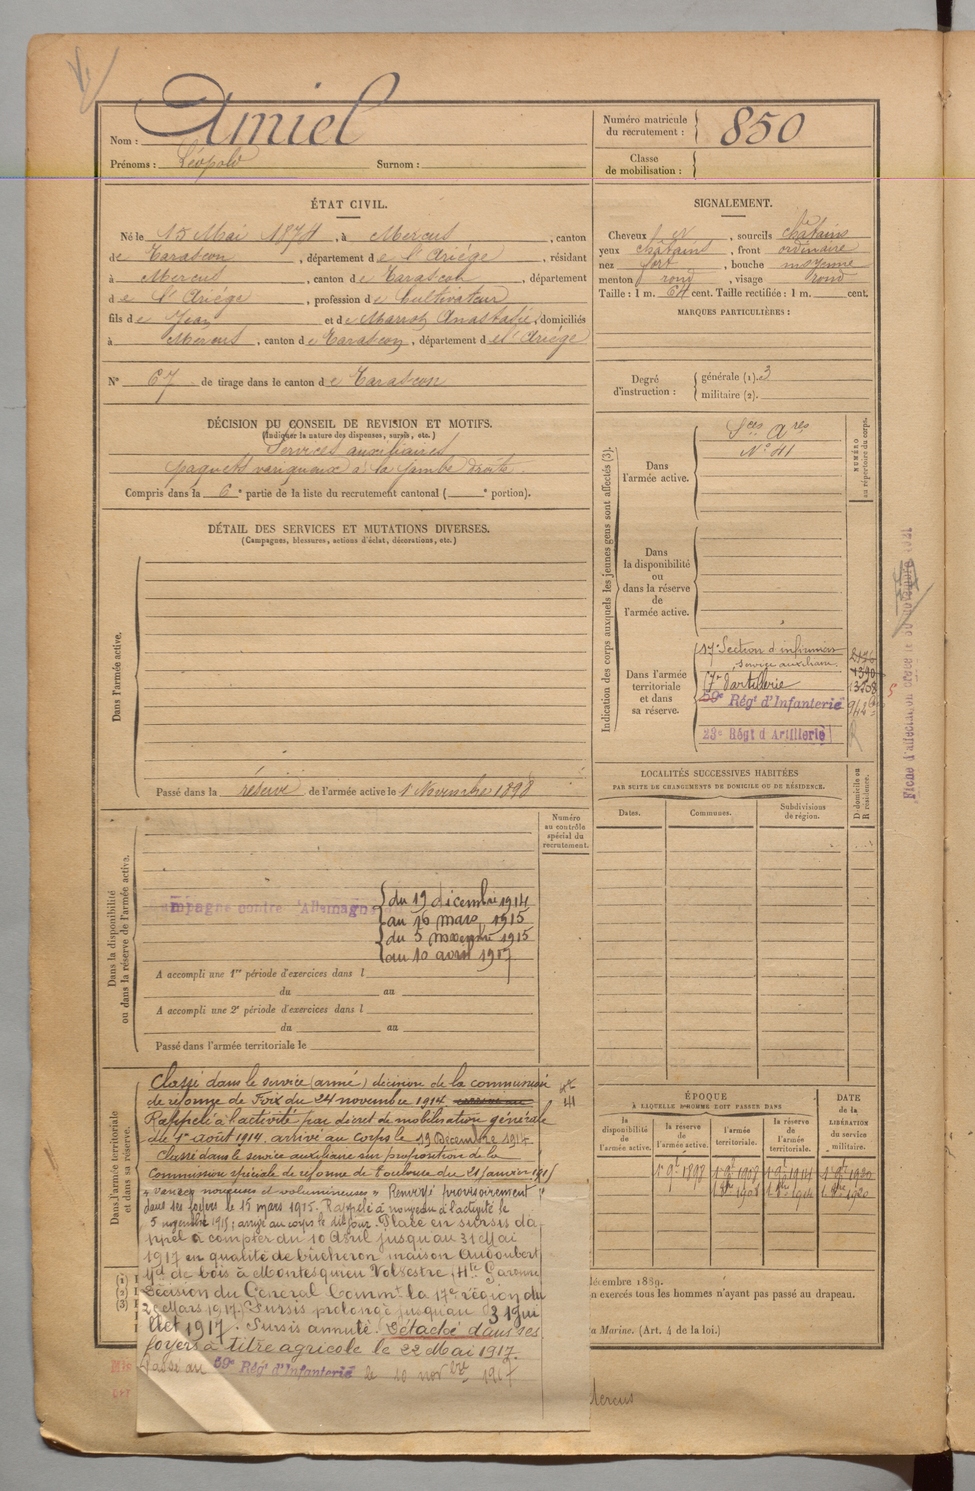 Nom : Amiel
Prénoms : Léopold Surnom :
Numéro matricule du recrutement : 850
Classe de mobilisation :
ÉTAT CIVIL.
Né le 15 Mai 1874, à Mercus, canton
de Tarascon, département de l'Ariége, résidant
à Mercus, canton de Tarascon, département
de l'Ariége, profession de Cultivateur
fils de Jean et de Anastasie, domiciliés
à Mercus, canton de Tarascon, département de l'Ariége
N° 67 de tirage dans le canton de Tarascon
SIGNALEMENT.
Cheveux N, sourcils châtains
yeux châtains, front ordinaire
nez fort, bouche moyenne
menton rond, visage rond
Taille : 1 m. 64 cent. Taille rectifiée : 1 m. cent.
MARQUES PARTICULIÈRES :
Degré d'instruction : générale (1). 3
militaire (2).
DÉCISION DU CONSEIL DE REVISION ET MOTIFS.
(Indiquer la nature des dispenses, sursis, etc.)
Services auxiliaires
paquets variqueux à la jambe droite.
Compris dans la 6e partie de la liste du recrutement cantonal ( e portion).
DÉTAIL DES SERVICES ET MUTATIONS DIVERSES.
(Campagnes, blessures, actions d'éclat, décorations, etc.)
Dans l'armée active.
Passé dans la réserve de l'armée active le 1 Novembre 1898
Indication des corps auxquels les jeunes gens sont affectés (3).
NUMÉRO au répertoire du corps.
Dans l'armée active.
Sces Ares
N° 41
Dans la disponibilité ou dans la réserve de l'armée active.
Dans l'armée territoriale et dans sa réserve.
17e Section d'infirmiers
service auxiliaire.
d'artillerie
59e Régt d'Infanterie
23e Régt d'Artillerie
Fiche d'affectation
LOCALITÉS SUCCESSIVES HABITÉES
PAR SUITE DE CHANGEMENTS DE DOMICILE OU DE RÉSIDENCE.
Dates. Communes. Subdivisions de région. D domicile ou R résidence.
Dans la disponibilité ou dans la réserve de l'armée active.
Numéro au contrôle spécial du recrutement.
mpagne contre l'Allemagne
du 19 décembre 1914
au 16 mars 1915
du 5 novembre 1915
au 10 avril 1917
A accompli une 1re période d'exercices dans l
du au
A accompli une 2e période d'exercices dans l
du au
Passé dans l'armée territoriale le
Dans l'armée territoriale et dans sa réserve.
Classé dans le service (armé) décision de la commission
de réforme de Foix du 24 novembre 1914
Rappelé à l'activité par décret de mobilisation générale
du 1er août 1914. arrivé au corps le 19 Décembre 1914
Classé dans le service auxiliaire sur proposition de la
Commission spéciale de réforme de Toulouse du 21 janvier 1915
« varices noueuses et volumineuses » Renvoyé provisoirement
dans ses foyers le 15 mars 1915. Rappelé à nouveau à l'activité le
5 novembre 1915; arrivé au corps le dit jour. Placé en sursis d'a
ppel à compter du 10 Avril jusqu'au 31 Mai
1917 en qualité de bûcheron maison Audoubert
Md de bois à Montesquieu Volvestre (Hte Garonne
Décision du Général Commt la 17e région du
Mars 1917. Sursis prolongé jusqu'au 31 jui
llet 1917. Sursis annulé. Détaché dans ses
foyers à titre agricole le 22 Mai 1917.
Passé au 59e Régt d'Infanterie le 10 novbre 1917
ÉPOQUE
À LAQUELLE L'HOMME DOIT PASSER DANS
la disponibilité de l'armée active. la réserve de l'armée active. l'armée territoriale. la réserve de l'armée territoriale.
DATE de la LIBÉRATION du service militaire.
décembre 1889.
en exercés tous les hommes n'ayant pas passé au drapeau.
a Marine. (Art. 4 de la loi.)
Mercus